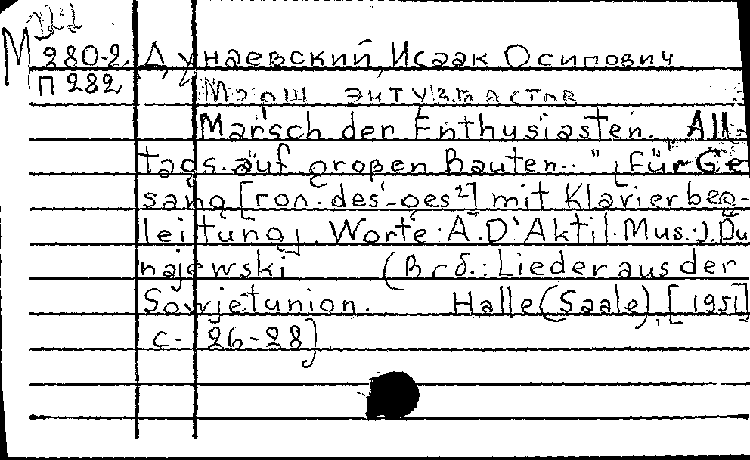 М 280-2 Дунаевский, Исаак Осипович
П 282 Марш энтузиастов
Marsch der Enthusiasten. „All-
tags auf großen Bauten.." [für Ge
sang [ron. des'-ges²] mit Klavierbeg-
leitung]. Worte: A. D'Aktil. Mus.: J. Du
najewski (В сб.: Lieder aus der
Sowjetunion. Halle (Saale), [1951]
с. 26-28)